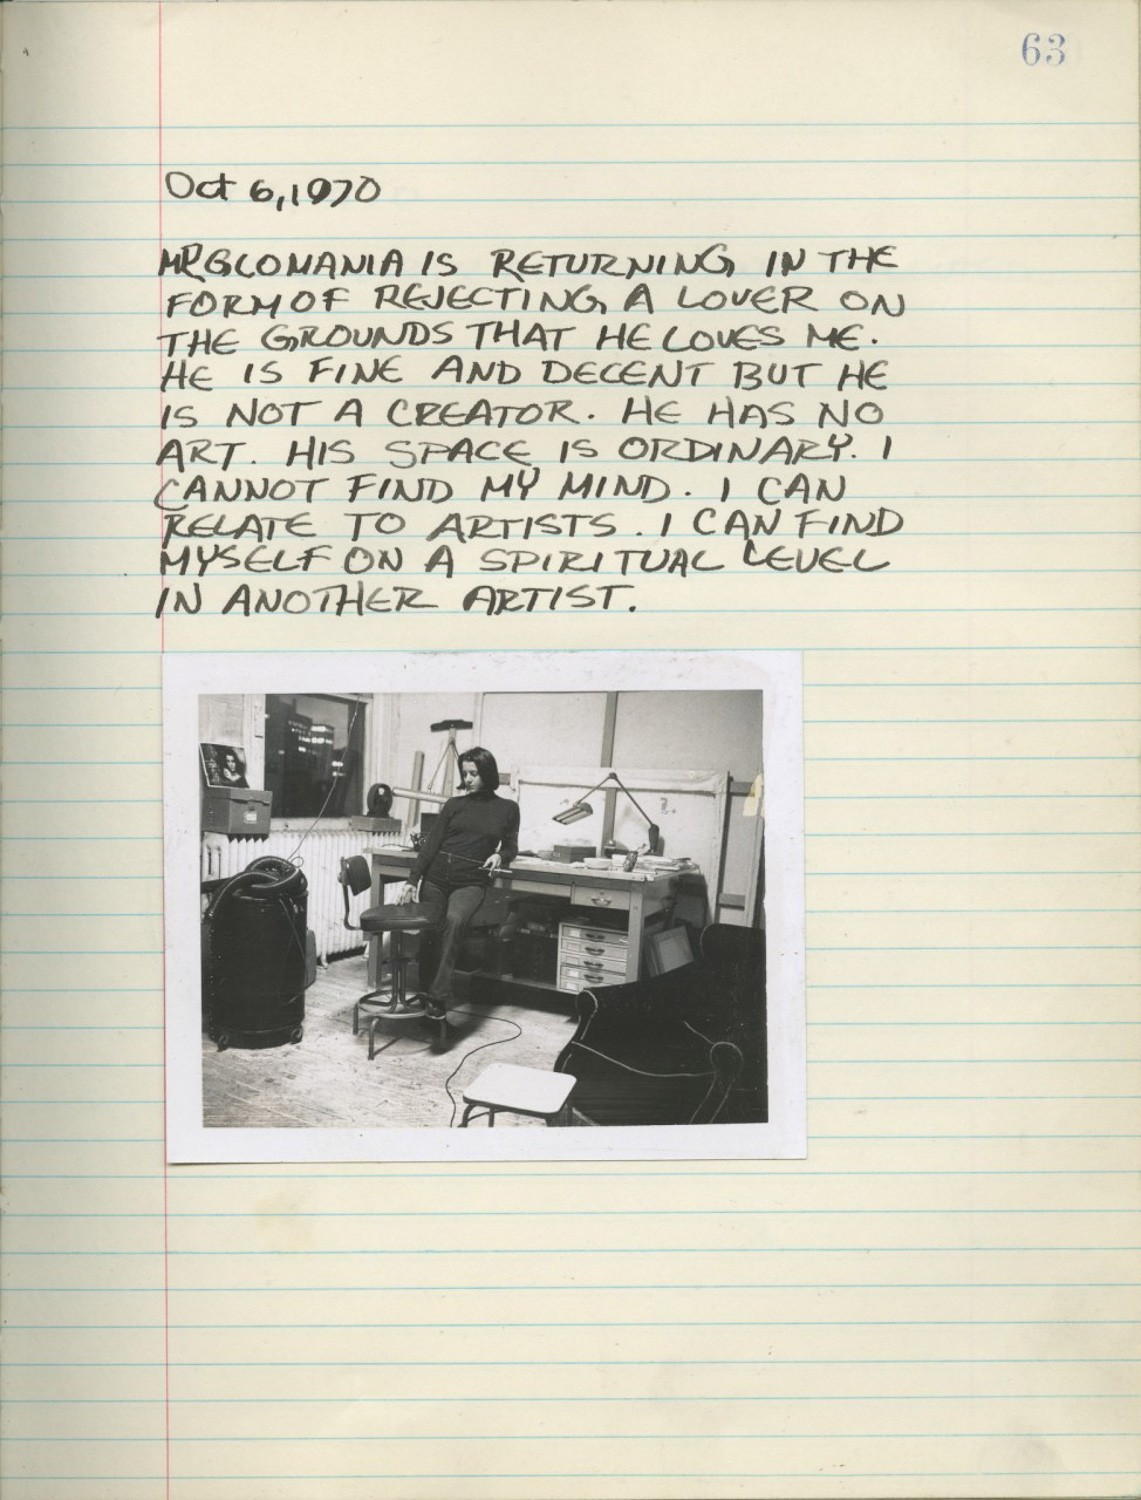 63
Oct 6, 1970
MEGLOMANIA IS RETURNING IN THE
FORM OF REJECTING A LOVER ON
THE GROUNDS THAT HE LOVES ME.
HE IS FINE AND DECENT BUT HE
IS NOT A CREATOR. HE HAS NO
ART. HIS SPACE IS ORDINARY. I
CANNOT FIND MY MIND. I CAN
RELATE TO ARTISTS. I CAN FIND
MYSELF ON A SPIRITUAL LEVEL
IN ANOTHER ARTIST.